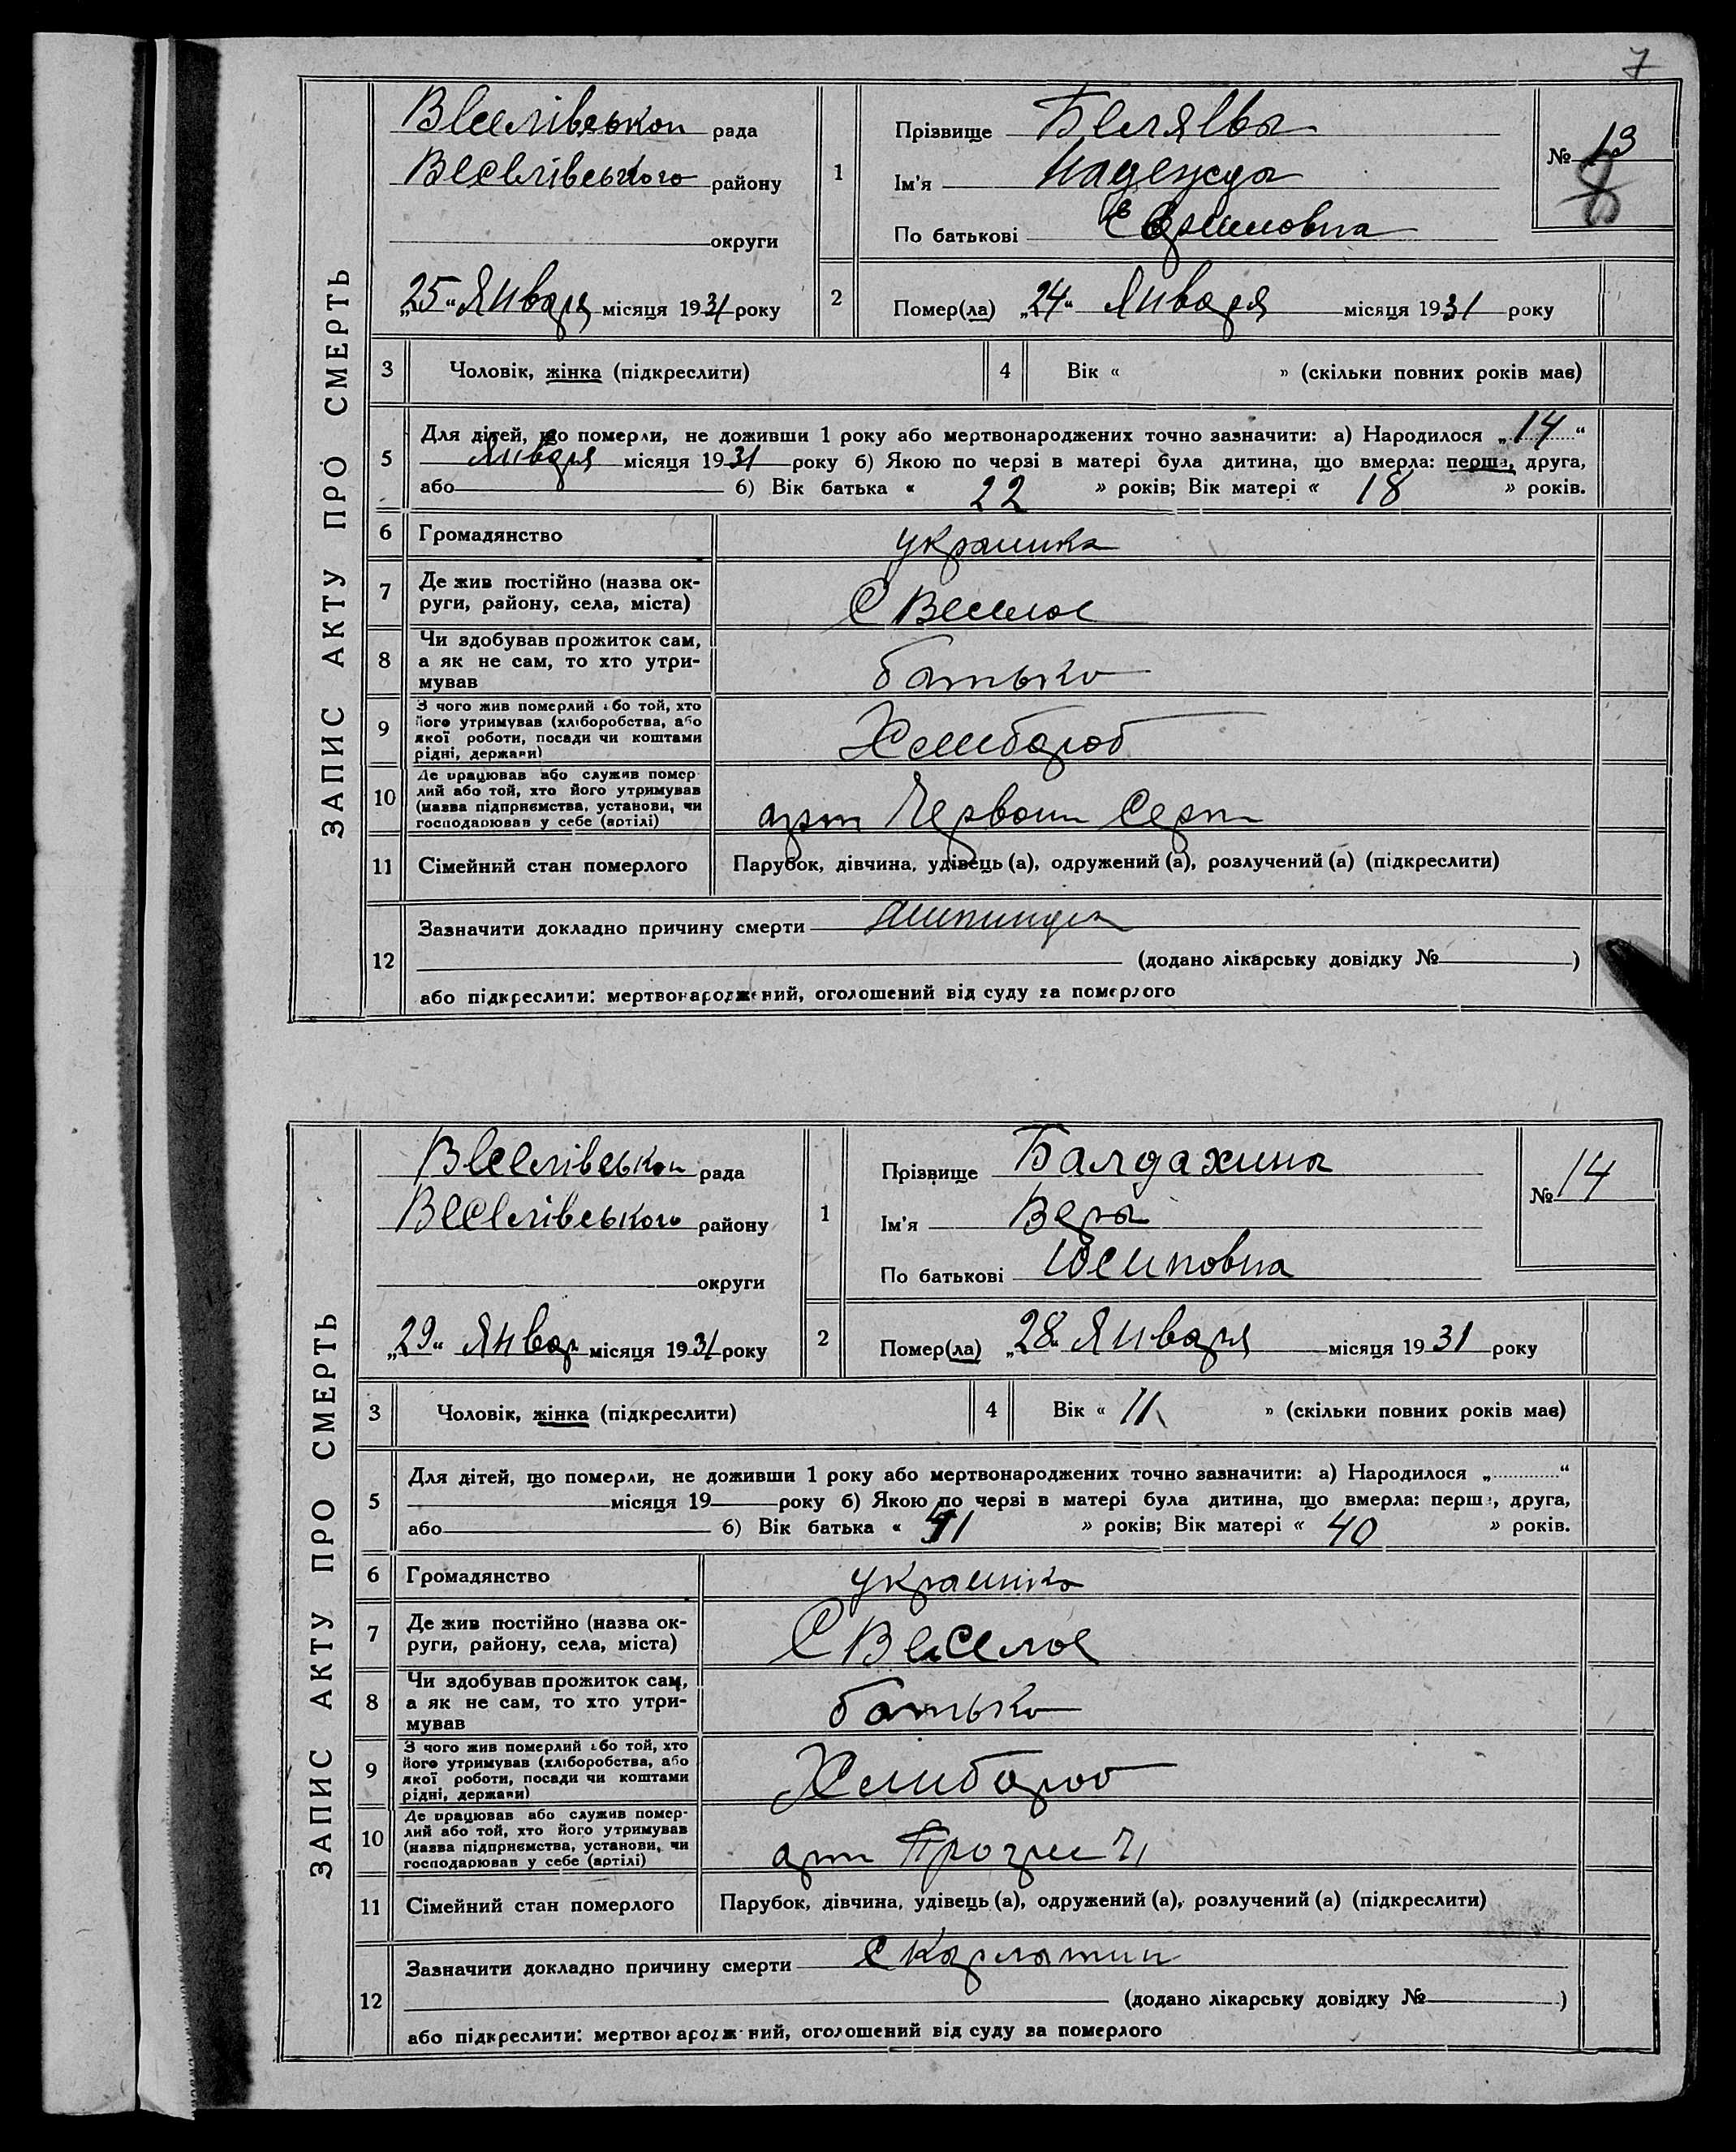 7
ЗАПИС АКТУ ПРО СМЕРТЬ
Веселівськой рада
Веселівського району
округи
„25“ Января місяця 1931 року
1
Прізвище Беляева
Ім'я Надежда
По батькові Ефимовна
№ 13
8
2
Помер(ла) „24“ Января місяця 1931 року
3 Чоловік, жінка (підкреслити)
4 Вік « » (скільки повних років мав)
5
Для дітей, що померли, не доживши 1 року або мертвонароджених точно зазначити: а) Народилося „14“
Января місяця 1931 року б) Якою по черзі в матері була дитина, що вмерла: перша, друга,
або б) Вік батька « 22 » років; Вік матері « 18 » років.
6 Громадянство украинка
7 Де жив постійно (назва ок-
руги, району, села, міста) С Веселое
8 Чи здобував прожиток сам,
а як не сам, то хто утри-
мував батько
9 З чого жив померлий або той, хто
його утримував (хліборобства, або
якої роботи, посади чи коштами
рідні, держави) Хлибороб
10 Де працював або служив помер-
лий або той, хто його утримував
(назва підприємства, установи, чи
господарював у себе (артілі) арт Червони Серп
11 Сімейний стан померлого Парубок, дівчина, удівець (а), одружений (а), розлучений (а) (підкреслити)
12
Зазначити докладно причину смерти
(додано лікарську довідку № )
або підкреслити: мертвонароджений, оголошений від суду за померлого
ЗАПИС АКТУ ПРО СМЕРТЬ
Веселівськой рада
Веселівського району
округи
„29“ Январ місяця 1931 року
1
Прізвище Балдахина
Ім'я Вера
По батькові Юсиповна
№ 14
2
Помер(ла) „28“ Января місяця 1931 року
3 Чоловік, жінка (підкреслити)
4 Вік « 11 » (скільки повних років мав)
5
Для дітей, що померли, не доживши 1 року або мертвонароджених точно зазначити: а) Народилося „ “
місяця 19 року б) Якою по черзі в матері була дитина, що вмерла: перша, друга,
або б) Вік батька « 41 » років; Вік матері « 40 » років.
6 Громадянство украинка
7 Де жив постійно (назва ок-
руги, району, села, міста) С Веселое
8 Чи здобував прожиток сам,
а як не сам, то хто утри-
мував батько
9 З чого жив померлий або той, хто
його утримував (хліборобства, або
якої роботи, посади чи коштами
рідні, держави) Хлибороб
10 Де працював або служив помер-
лий або той, хто його утримував
(назва підприємства, установи, чи
господарював у себе (артілі) арт
11 Сімейний стан померлого Парубок, дівчина, удівець (а), одружений (а), розлучений (а) (підкреслити)
12
Зазначити докладно причину смерти Скарлатин
(додано лікарську довідку № )
або підкреслити: мертвонароджений, оголошений від суду за померлого